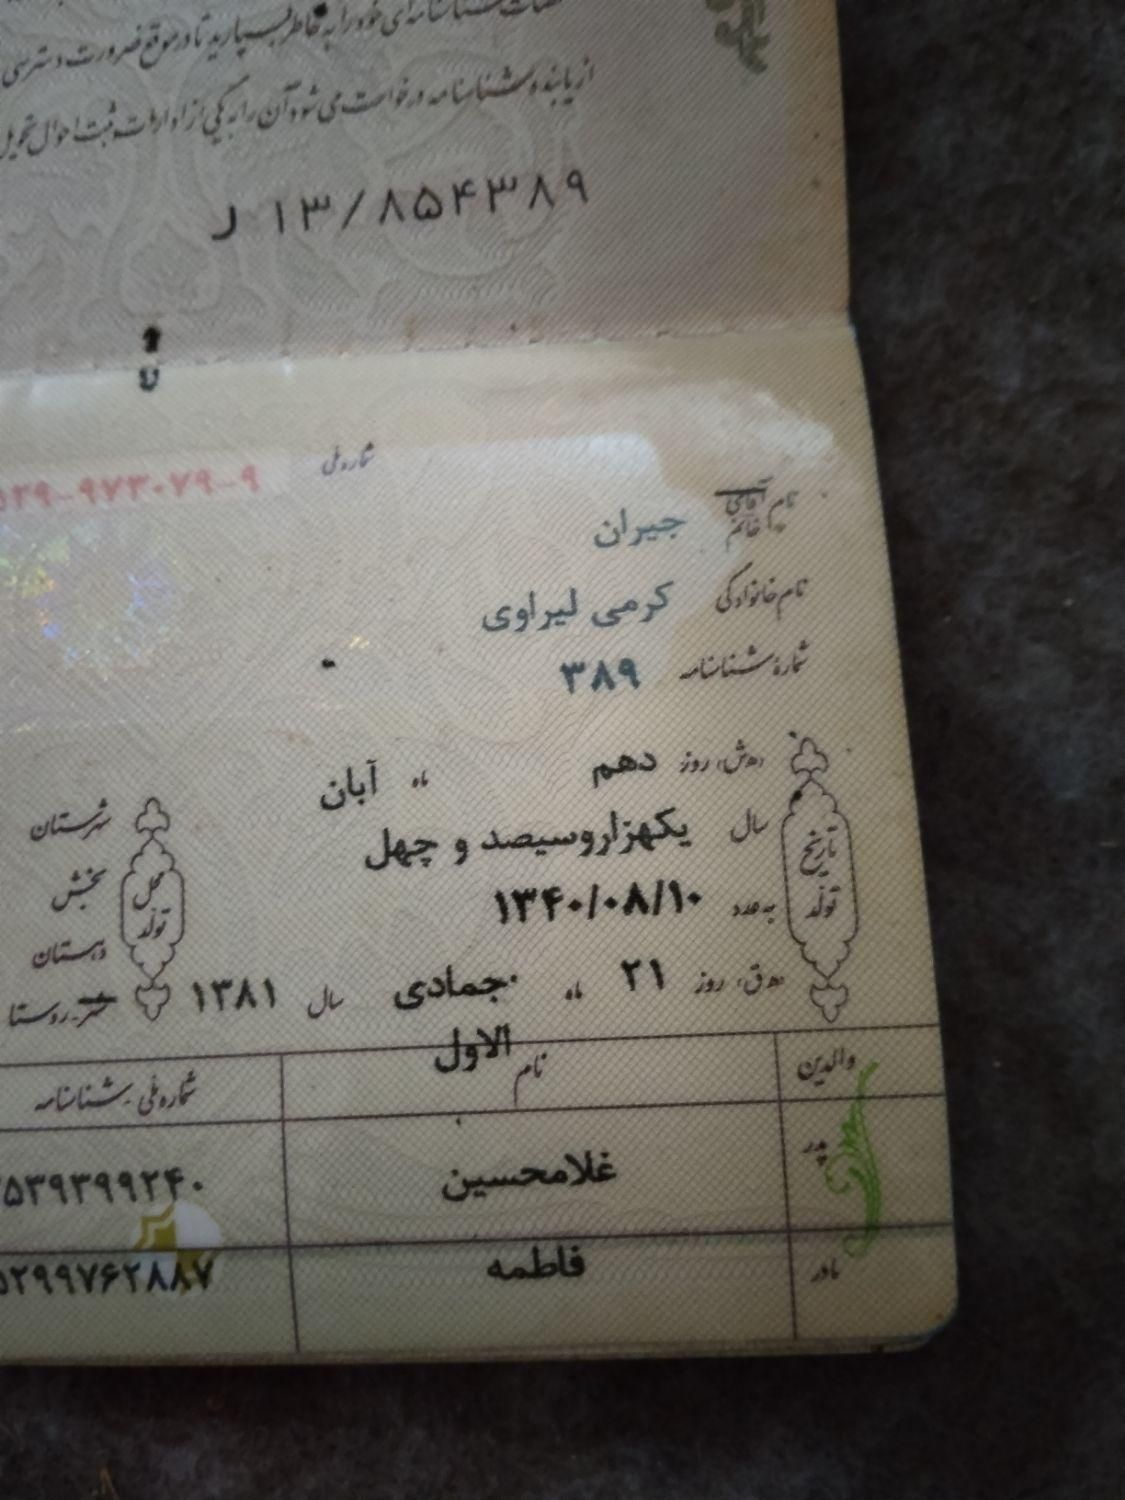 شناسنامه‌ای خود را به خاطر بسپارید تا در موقع ضرورت دسترسی
از یابنده شناسنامه درخواست می شود آن را به یکی از ادارات ثبت احوال تحویل
۱۳/۸۵۴۳۸۹ ل
شماره ملی ۵۲۹-۹۷۳۰۷۹-۹
نام آقای خانم جیران
نام خانوادگی کرمی لیراوی
شمارهٔ شناسنامه ۳۸۹
تاریخ تولد
(ه‍.ش) روز دهم ماه آبان
سال یکهزار و سیصد و چهل
به عدد ۱۳۴۰/۰۸/۱۰
(ه‍.ق) روز ۲۱ ماه جمادی الاول سال ۱۳۸۱
محل تولد
شهرستان
بخش
دهستان
شهر - روستا
والدین نام شماره ملی - شناسنامه
پدر غلامحسین ۵۳۹۳۹۹۲۴۰
مادر فاطمه ۵۲۹۹۷۶۲۸۸۷